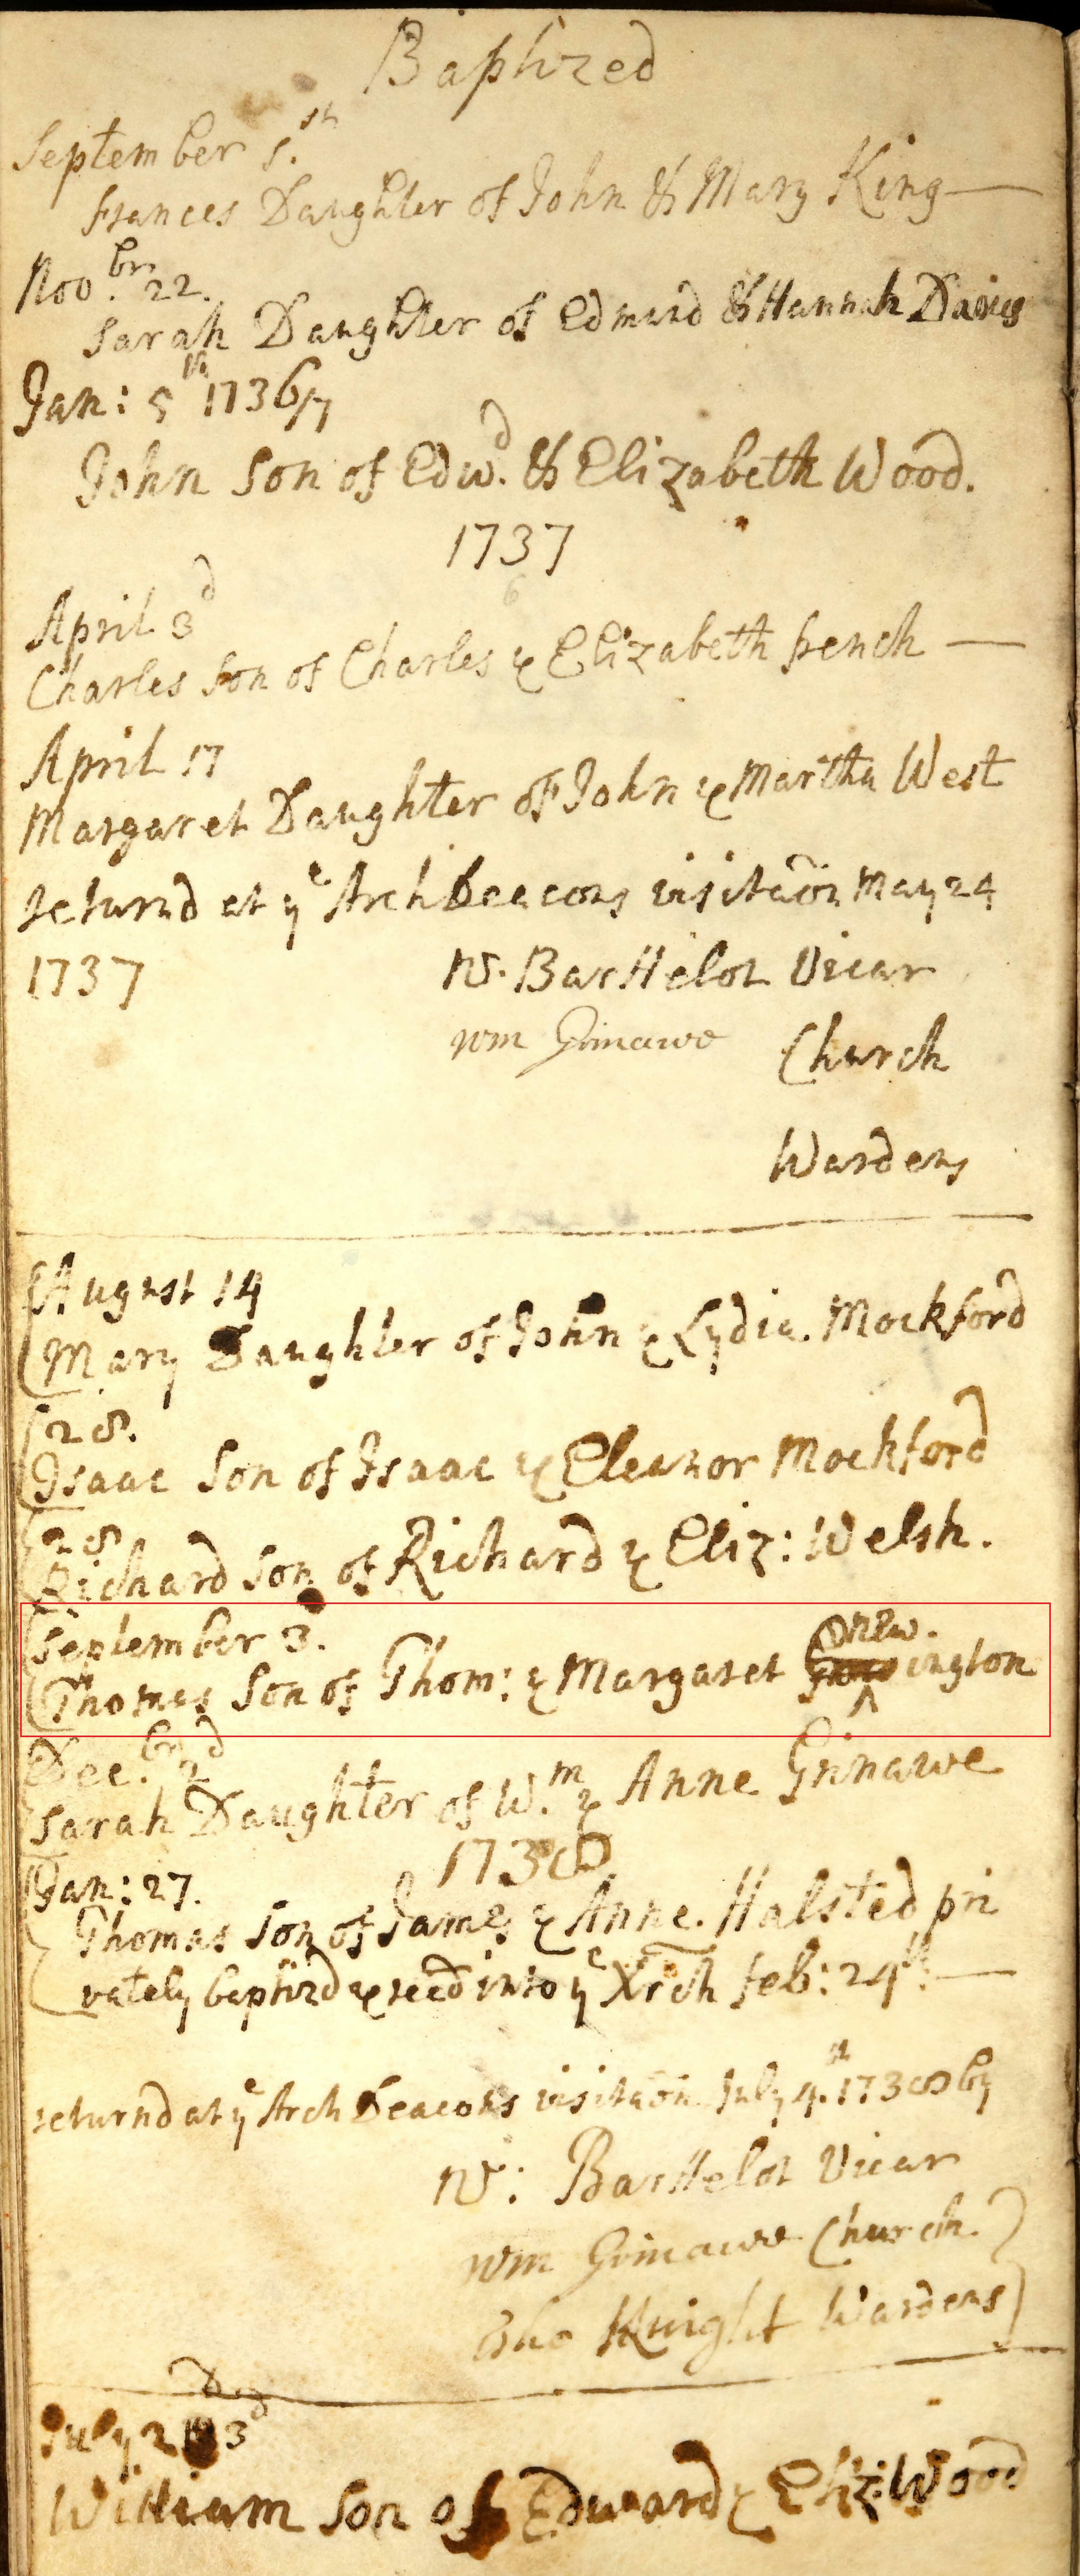 Baptized
September 5.th
Frances Daughter of John & Mary King
Nov.br 22.
Sarah Daughter of Edmund & Hannah Davies
Jan: 5th 1736/7
John Son of Edw.d & Elizabeth Wood.
1737
April 3d
Charles Son of Charles & Elizabeth french
April 17
Margaret Daughter of John & Martha West
returnd at ye Arch Deacons visitaon May 24
1737 W. Barttelot Vicar
wm Grinawe Church
Wardens
August 14
Mary Daughter of John & Lydia. Mockford
28.
Isaac Son of Isaac & Eleanor Mockford
28
Richard Son of Richard & Eliz: Welsh.
September 3.
Thomas Son of Thom: & Margaret ington
Dec.br 2d
Sarah Daughter of W.m & Anne Grinawe
1738
Jan: 27.
Thomas Son of James & Anne. Halsted pri
vately baptizd & recd into ye Xrch feb: 24th:
returnd at ye Arch Deacons visitaon July 4.th 1738 by
W: Barttelot Vicar
wm Grinawe Church
Tho Knight Wardens
July 3d
William Son of Edward & Eliz: Wood